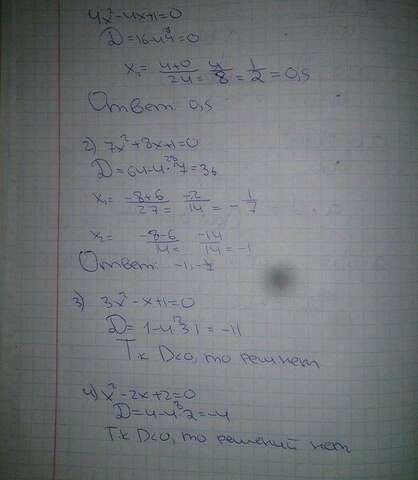 4x²-4x+1=0
D=16-4·4=0
x₁= 4+0/2·4 = 4/8 = 1/2 = 0,5
Ответ: 0,5
2) 7x²+8x+1=0
D=64-4·7=36
x₁= -8+6/2·7 = -2/14 = -1/7
x₂= -8-6/14 = -14/14 = -1
Ответ: -1;
3) 3x²-x+1=0
D=1-4·3·1=-11
Т.к D<0, то реш нет
4) x²-2x+2=0
D=4-4·2=-4
Т.к D<0, то решений нет